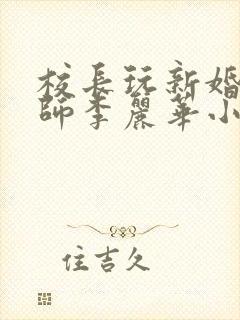 校長玩新婚
師李麗華小
住吉久